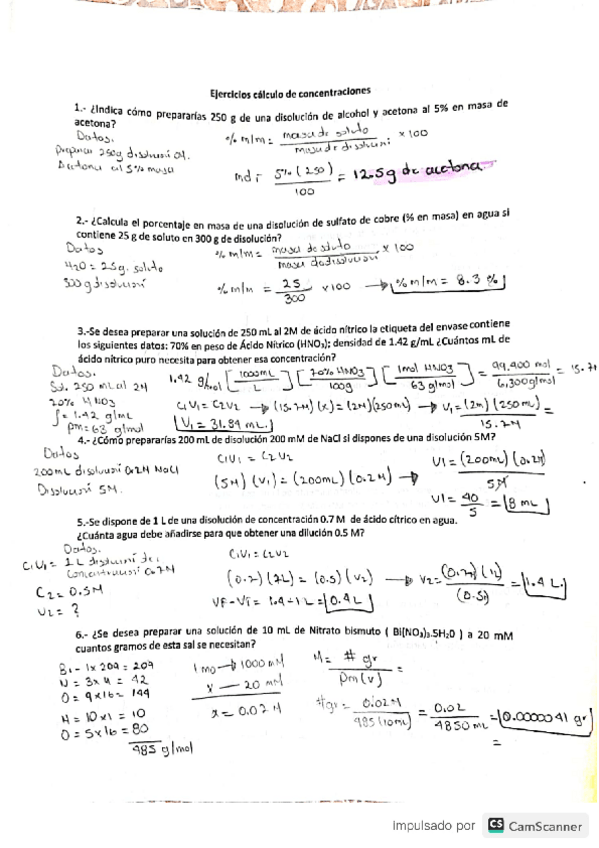 Ejercicios cálculo de concentraciones
1.- ¿Indica cómo prepararías 250 g de una disolución de alcohol y acetona al 5% en masa de
acetona?
Datos.
Preparar 250g disolución OH.
Acetona al 5% masa
% m/m = masa de soluto / masa de disolución x 100
md = 5% (250) / 100 = 12.5g de acetona
2.- ¿Calcula el porcentaje en masa de una disolución de sulfato de cobre (% en masa) en agua si
contiene 25 g de soluto en 300 g de disolución?
Datos
H2O = 25g. soluto
300g disolución
% m/m = masa de soluto / masa de disolución x 100
% m/m = 25 / 300 x100 → % m/m = 8.3 %
3.-Se desea preparar una solución de 250 mL al 2M de ácido nítrico la etiqueta del envase contiene
los siguientes datos: 70% en peso de Ácido Nítrico (HNO₃); densidad de 1.42 g/mL ¿Cuántos mL de
ácido nítrico puro necesita para obtener esa concentración?
Datos.
Sol. 250 mL al 2M
70% HNO3
ʃ = 1.42 g/mL
pm = 63 g/mol
1.42 g/mol [1000mL / L] [70% HNO3 / 100g] [1mol HNO3 / 63 g/mol] = 99,400 mol / 6,300 g/mol = 15.7M
C1V1 = C2V2 → (15.7M)(x) = (2M)(250mL) → V1 = (2m)(250mL) / 15.7M =
V1 = 31.84 mL.
4.- ¿Cómo prepararías 200 mL de disolución 200 mM de NaCl si dispones de una disolución 5M?
Datos
200mL disolución 0.2M NaCl
Disolución 5M.
C1V1 = C2V2
(5M)(V1) = (200mL)(0.2M) →
V1 = (200mL)(0.2M) / 5M
V1 = 40 / 5 = 8 mL
5.-Se dispone de 1 L de una disolución de concentración 0.7 M de ácido cítrico en agua.
¿Cuánta agua debe añadirse para que obtener una dilución 0.5 M?
Datos.
C1V1 = 1L disolución de
concentración 0.7M
C2 = 0.5M
V2 = ?
C1V1 = C2V2
(0.7)(1L) = (0.5)(V2) → V2 = (0.7)(1L) / (0.5) = 1.4 L.
VF - Vi = 1.4 - 1L = 0.4L
6.- ¿Se desea preparar una solución de 10 mL de Nitrato bismuto ( Bi(NO₃)₃.5H₂O ) a 20 mM
cuantos gramos de esta sal se necesitan?
Bi - 1x209 = 209
N = 3x4 = 42
O = 9x16 = 144
H = 10x1 = 10
O = 5x16 = 80
485 g/mol
1 mo → 1000 mM
x — 20 mM
x = 0.02 M
M = # gr / Pm(v) =
#gr = 0.02M / 485 (10mL) = 0.02 / 4850 mL = 0.0000041 gr
=
Impulsado por CS CamScanner